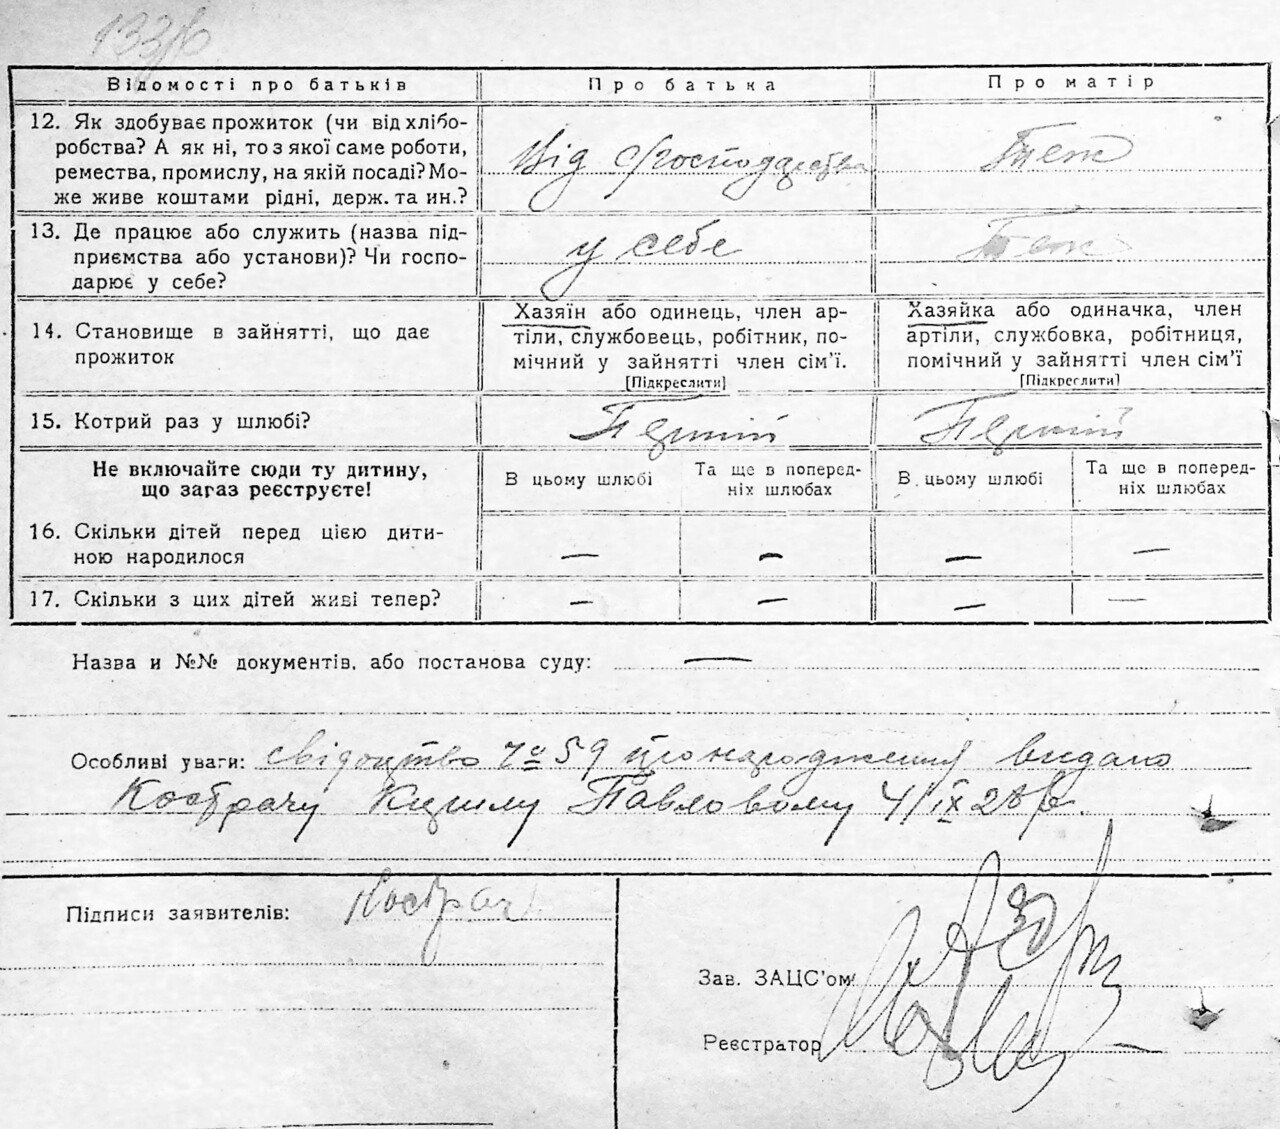 133/6
Відомості про батьків
Про батька
Про матір
12. Як здобуває прожиток (чи від хлібо-
робства? А як ні, то з якої саме роботи,
ремества, промислу, на якій посаді? Мо-
же живе коштами рідні, держ. та ин.?
Від господарства
Теж
13. Де працює або служить (назва під-
приємства або установи)? Чи госпо-
дарює у себе?
у себе
Теж
14. Становище в зайнятті, що дає
прожиток
Хазяїн або одинець, член ар-
тіли, службовець, робітник, по-
мічний у зайнятті член сім’ї.
[Підкреслити]
Хазяйка або одиначка, член
артіли, службовка, робітниця,
помічний у зайнятті член сім’ї
[Підкреслити]
15. Котрий раз у шлюбі?
Перший
Перший
Не включайте сюди ту дитину,
що загаз реєструєте!
В цьому шлюбі
Та ще в поперед-
ніх шлюбах
В цьому шлюбі
Та ще в поперед-
ніх шлюбах
16. Скільки дітей перед цією дити-
ною народилося
— — — —
17. Скільки з цих дітей живі тепер?
— — — —
Назва и №№ документів, або постанова суду: —
Особливі уваги: свідоцтво № 59 про народження видано
Кострачу Кирилу Павловому 4/IX 28 р.
Підписи заявителів: Кострач
Зав. ЗАЦС’ом
Реєстратор